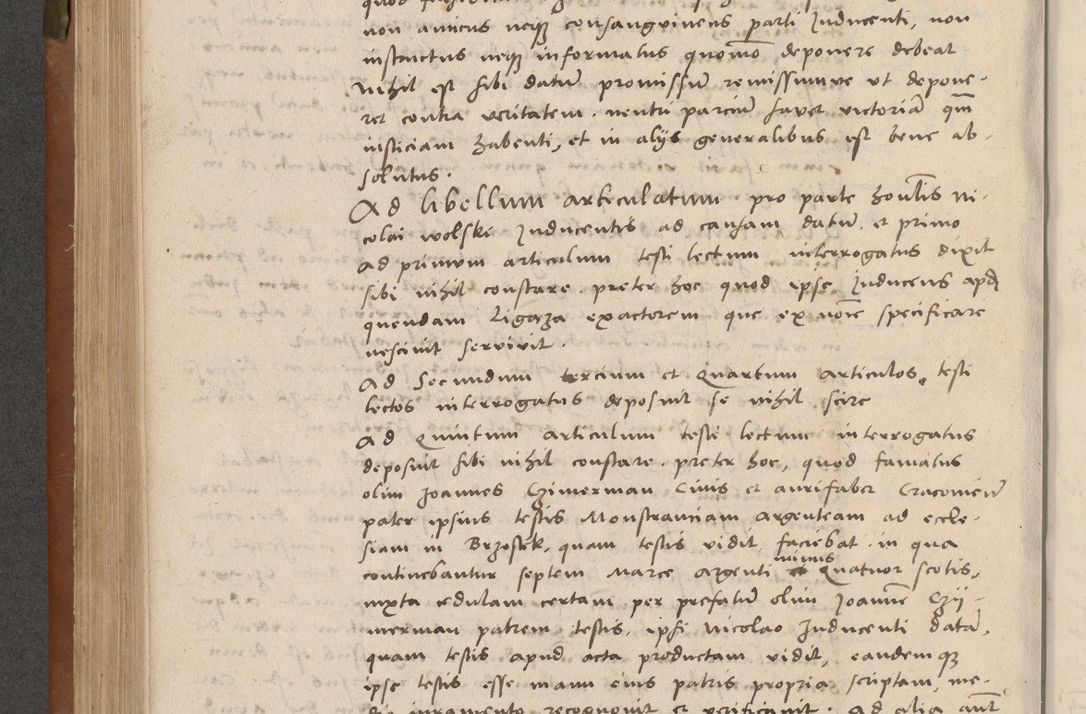 non amicus neqз consanguineus parti Inducenti, non
instructus neqз informatus quomō deponere debeat
Nihil est sibi datū promissū remissumve ut depone-
ret contra veritatem. neutri parciū favet victoriā qm̄
iusticiam habenti, et in alijs generalibus est bene ab-
solutus.
Ad libellum articulatum pro parte honlis Ni-
colai Wolski Inducentis ad causam datū. et primo
ad primum articulum testis lectum interrogatus dixit
sibi nihil constare. preter hoc quod ipse Inducens apd
quendam Ligąza exactorem que ex noīe specificare
nescivit servivit.
Ad Secundum tercium et Quartum articulos, testi
lectos interrogatus deposuit se nihil scire
Ad Quintum articulum testi lectum interrogatus
deposuit sibi nihil constare. preter hoc, quod famatus
olim Joannes Czimerman Civis et aurifaber Cracovien̄
pater ipsius testis Monstranciam argenteam ad eccle-
siam in Brzostek, quam testis vidit, faciebat. in qua
continebantur septem Marce argenti minus Quatuor scotis,
iuxta cedulam certam per prefatū olim Joannē Czy-
merman patrem testis, ipsi Nicolao Inducenti datā,
quam testis apud acta productam vidit, eandemqз
ipse testis esse manu eius patris propria scriptam, me-
dio iuramento recognovit et verificavit. Ad alia aūt